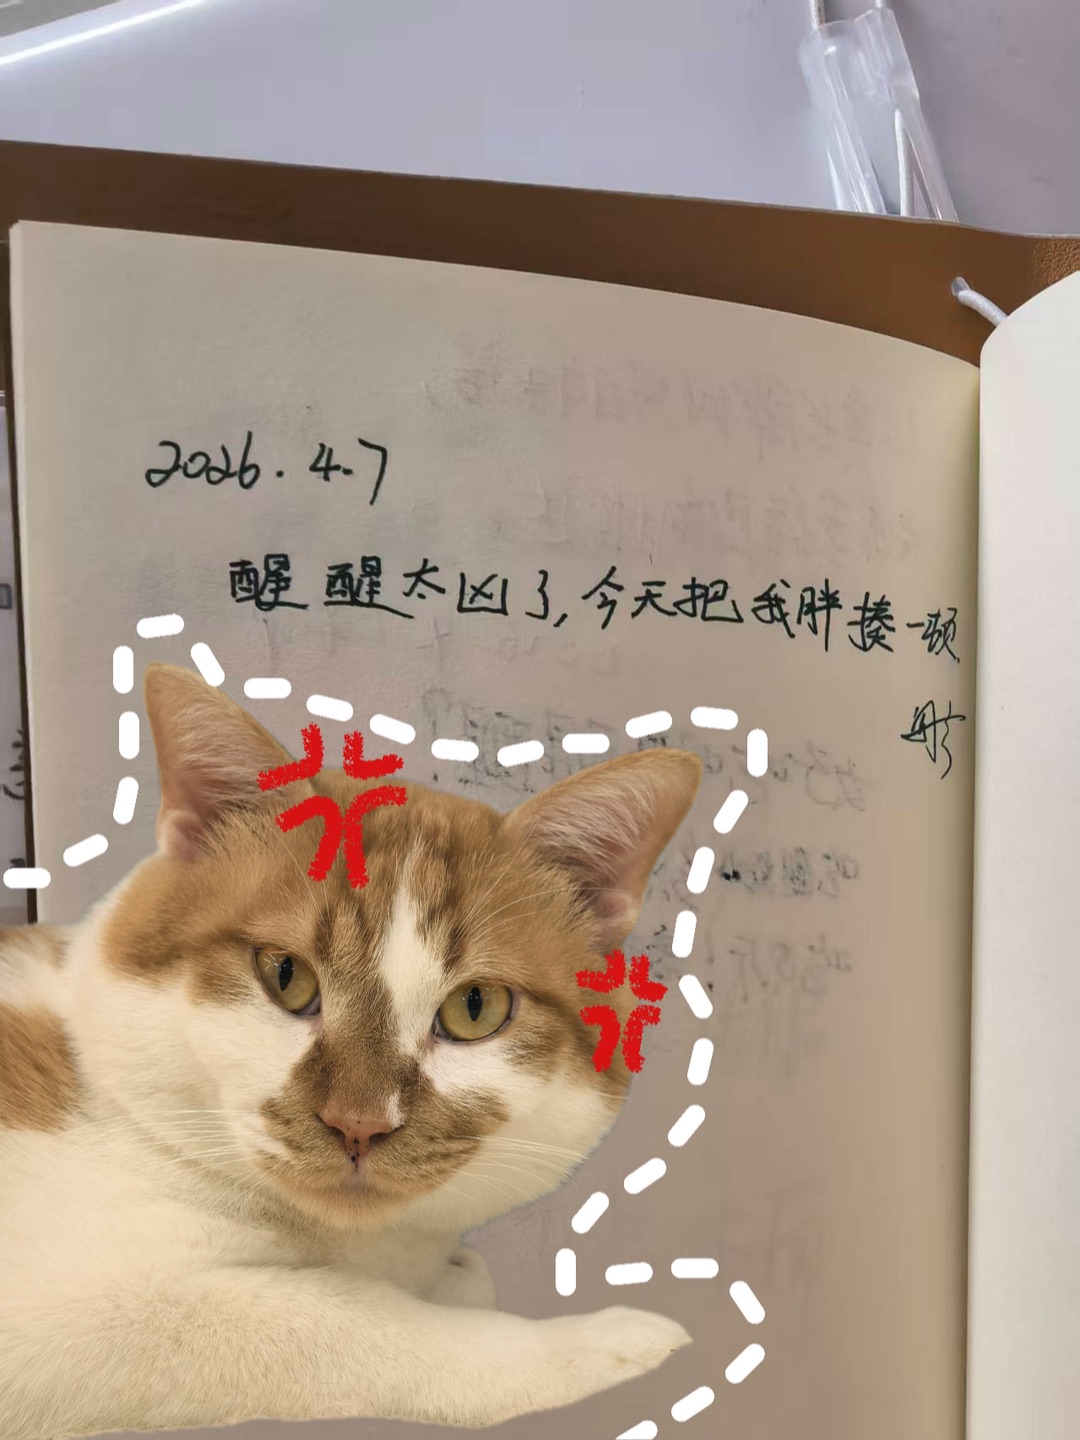 2026.4.7
醒醒太凶了,今天把我胖揍一顿